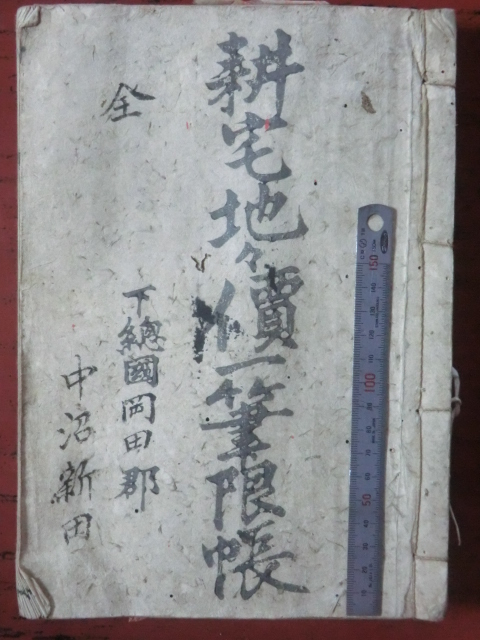 耕宅地々價一筆限帳
全
下總國岡田郡
中沼新田
150
100
50